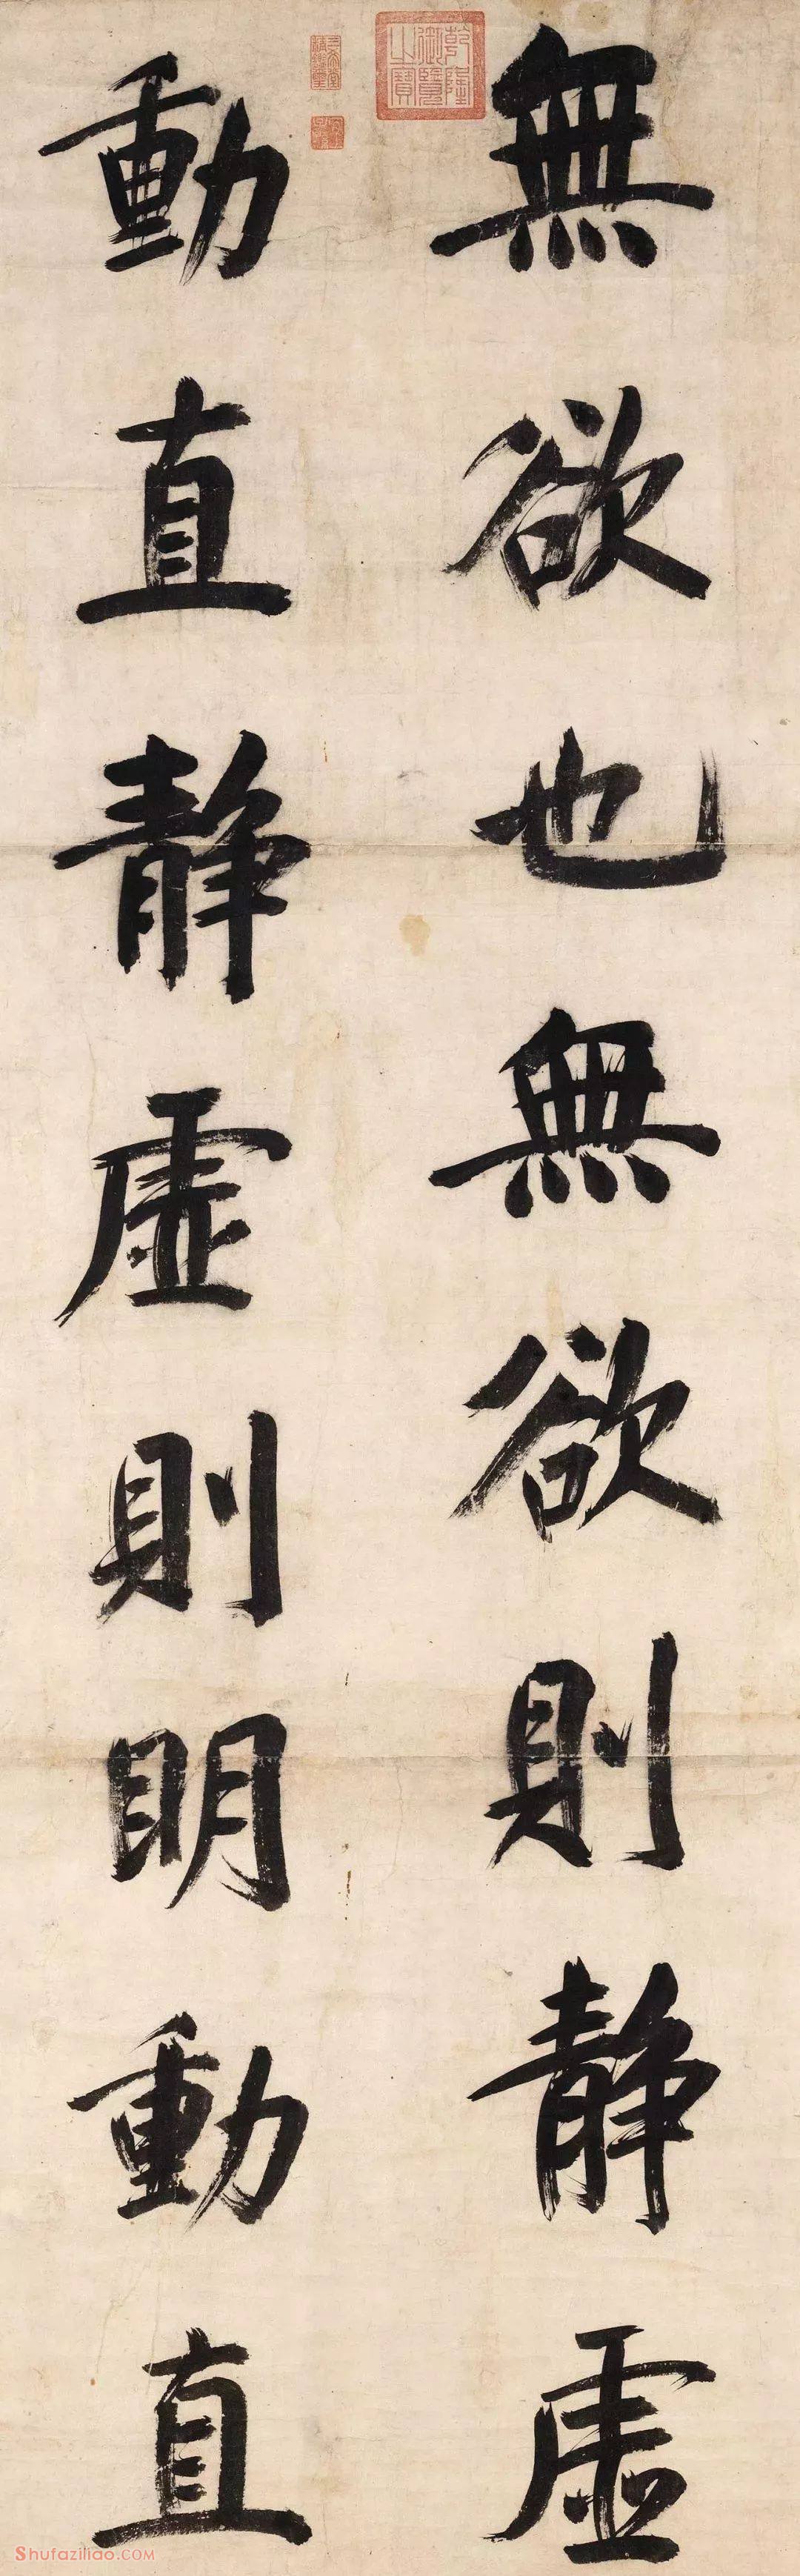 無欲也無欲則静虛
動直静虛則明動直
乾隆御覽之寶
Shufaziliao.COM